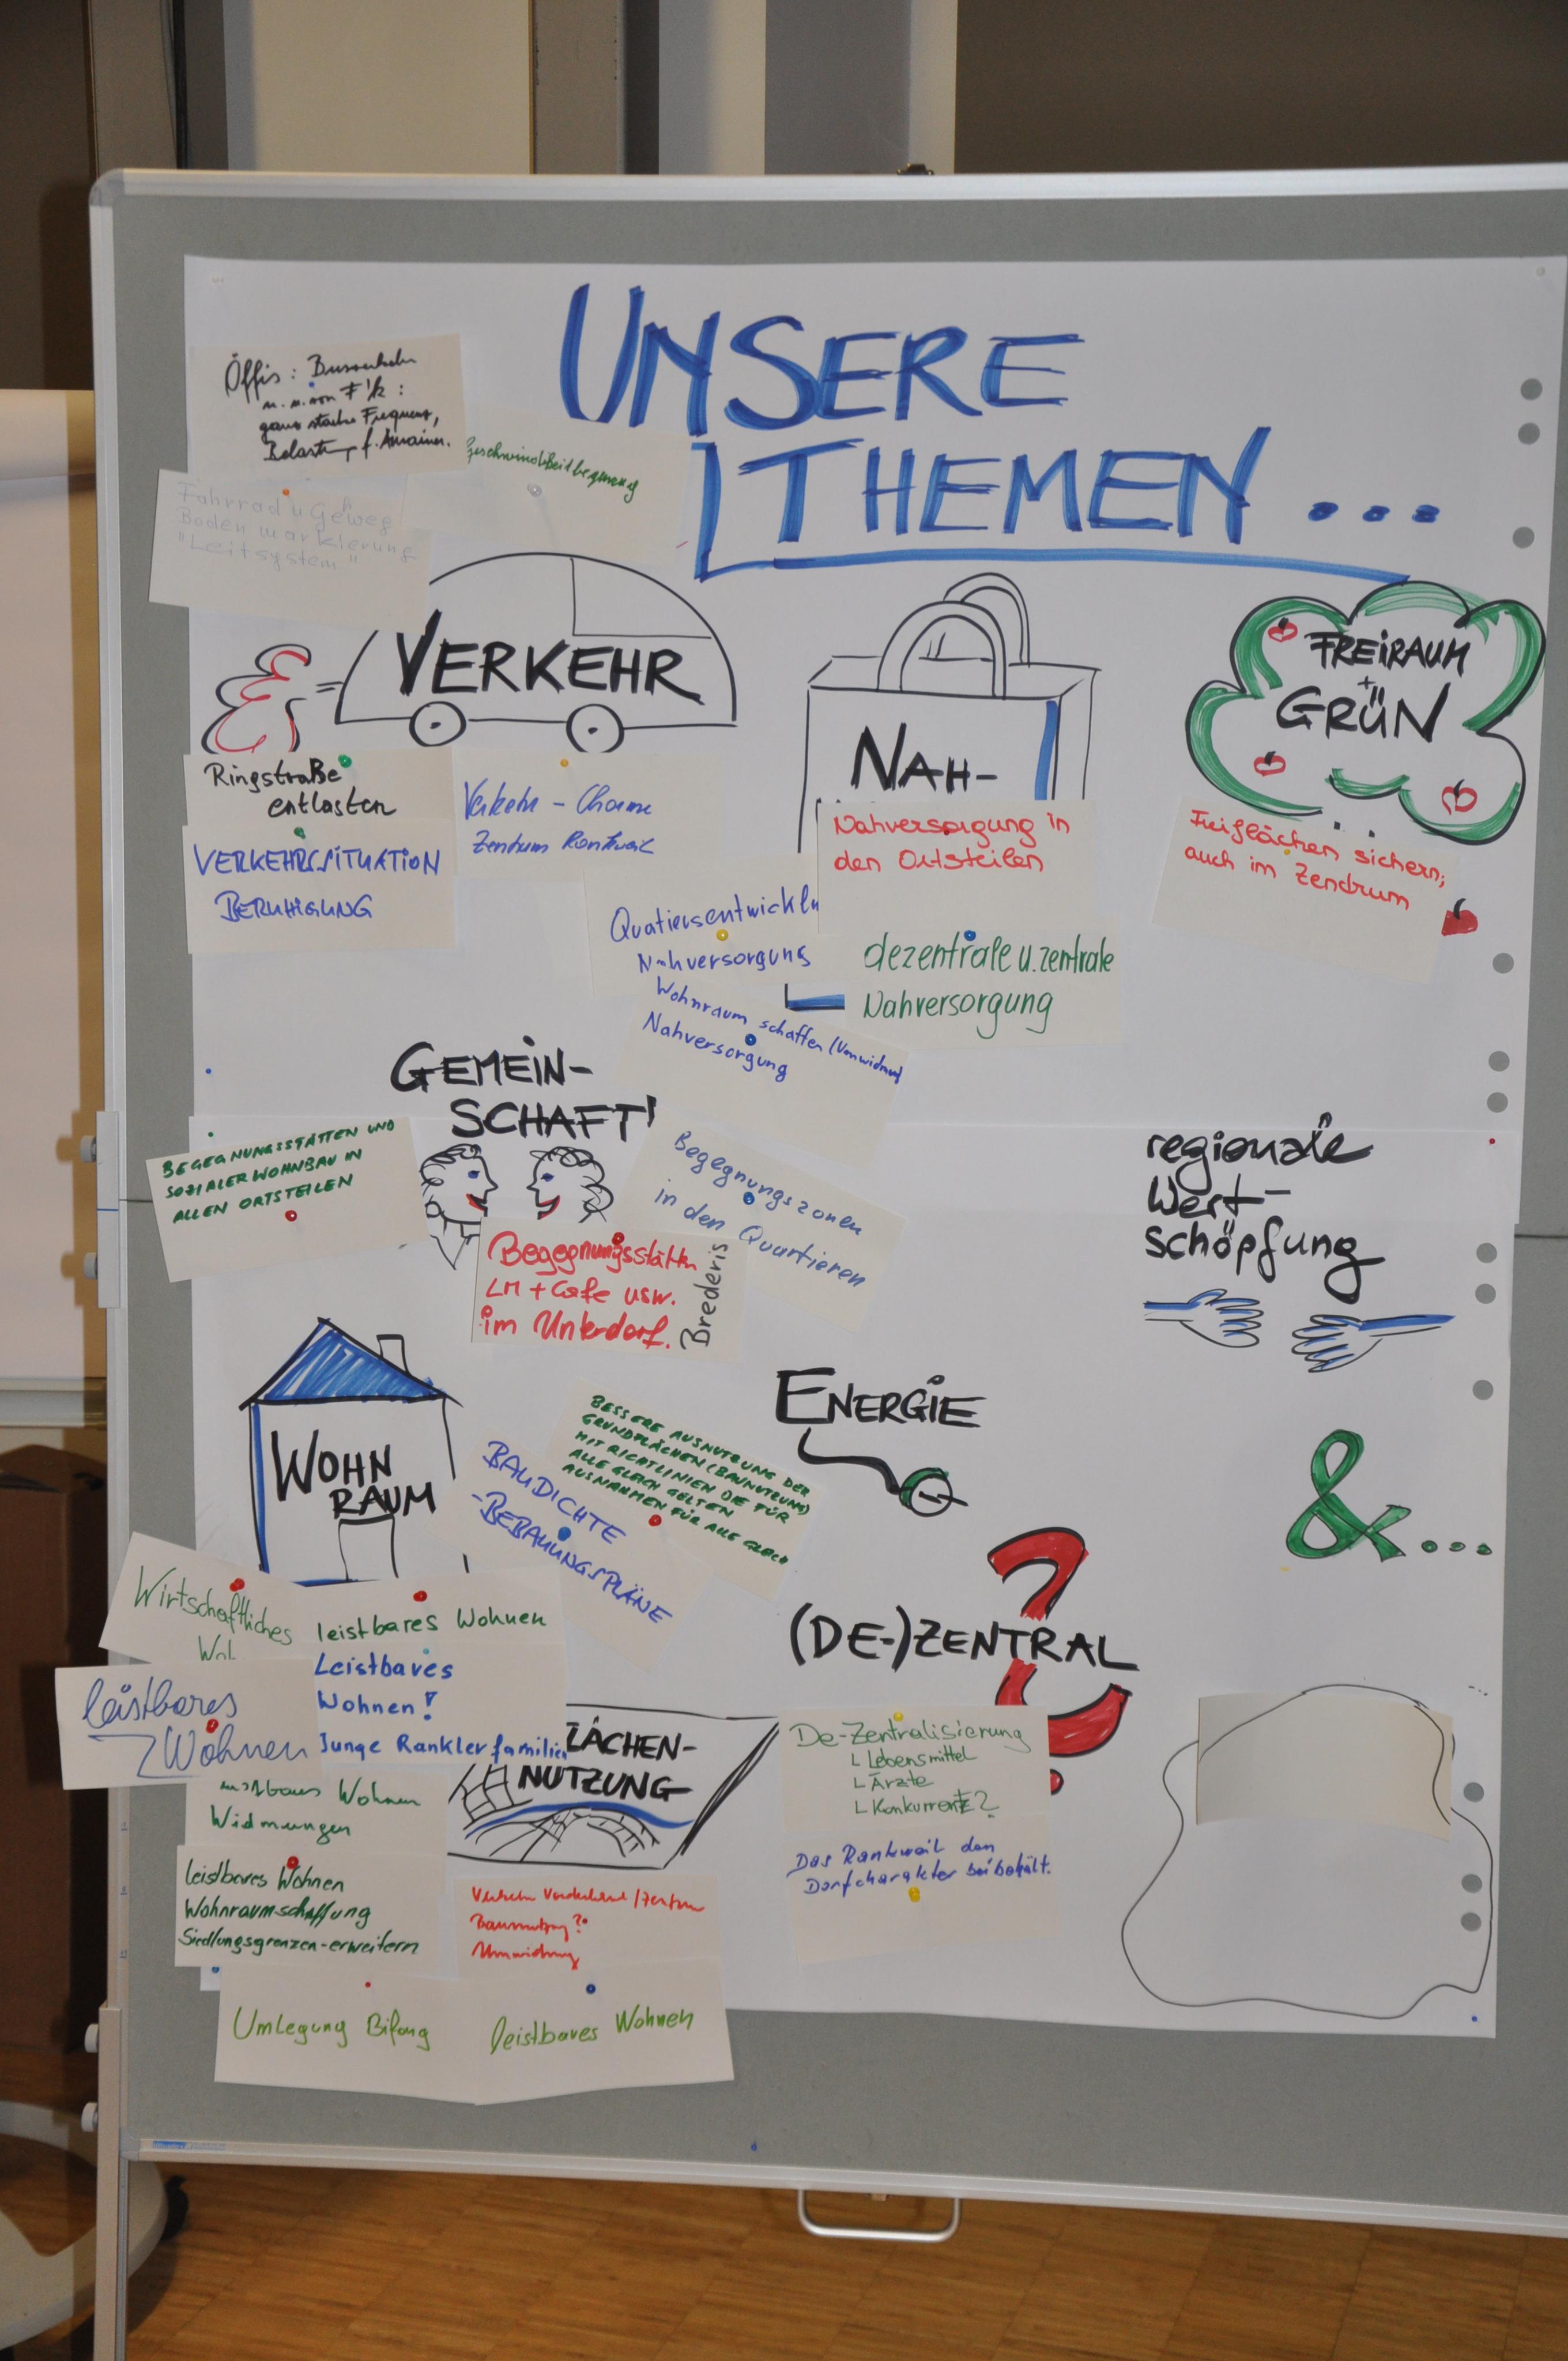 UNSERE
THEMEN...
Öffis:
F'k:
Belastung f. Anrainer.
Geschwindigkeitbegrenzung
Fahrrad u Gehweg
Bodenmarkierung
"Leitsystem"
VERKEHR
Ringstraße
entlasten
VERKEHRSSITUATION
BERUHIGUNG
Verkehr -
Zentrum Rankweil
NAH-
Nahversorgung in
den Ortsteilen
Nahversorgung
dezentrale u. zentrale
Nahversorgung
Wohnraum schaffen
Nahversorgung
FREIRAUM
+
GRÜN
Freiflächen sichern;
auch im Zendrum
GEMEIN-
SCHAFT
BEGEGNUNGSSTÄTTEN UND
SOZIALER WOHNBAU IN
ALLEN ORTSTEILEN
Begegnungszonen
in den Quartieren
Begegnungsstätten
LM + Cafe usw.
im Unterdorf.
Brederis
regionale
Wert-
schöpfung
WOHN
RAUM
BAUDICHTE
-BEBAUUNGSPLÄNE
BESSERE AUSNUTZUNG DER
GRUNDFLÄCHEN (BAUNUTZUNG)
MIT RICHTLINIEN DIE FÜR
ALLE GLEICH GELTEN
AUSNAHMEN FÜR ALLE GLEICH
ENERGIE
&...
(DE-)ZENTRAL
?
Wirtschaftliches
leistbares Wohnen
Leistbares
Wohnen!
Junge Ranklerfamilien
leistbares
Wohnen
Wohnen
Widmungen
leistbares Wohnen
Wohnraumschaffung
Siedlungsgrenzen-erweitern
LÄCHEN-
NUTZUNG
Baunutzung?
Umwidmung
De-Zentralisierung
L Lebensmittel
L Ärzte
L Konkurrentz?
Das Rankweil den
Dorfcharakter beibehält.
Umlegung Bifang
leistbares Wohnen